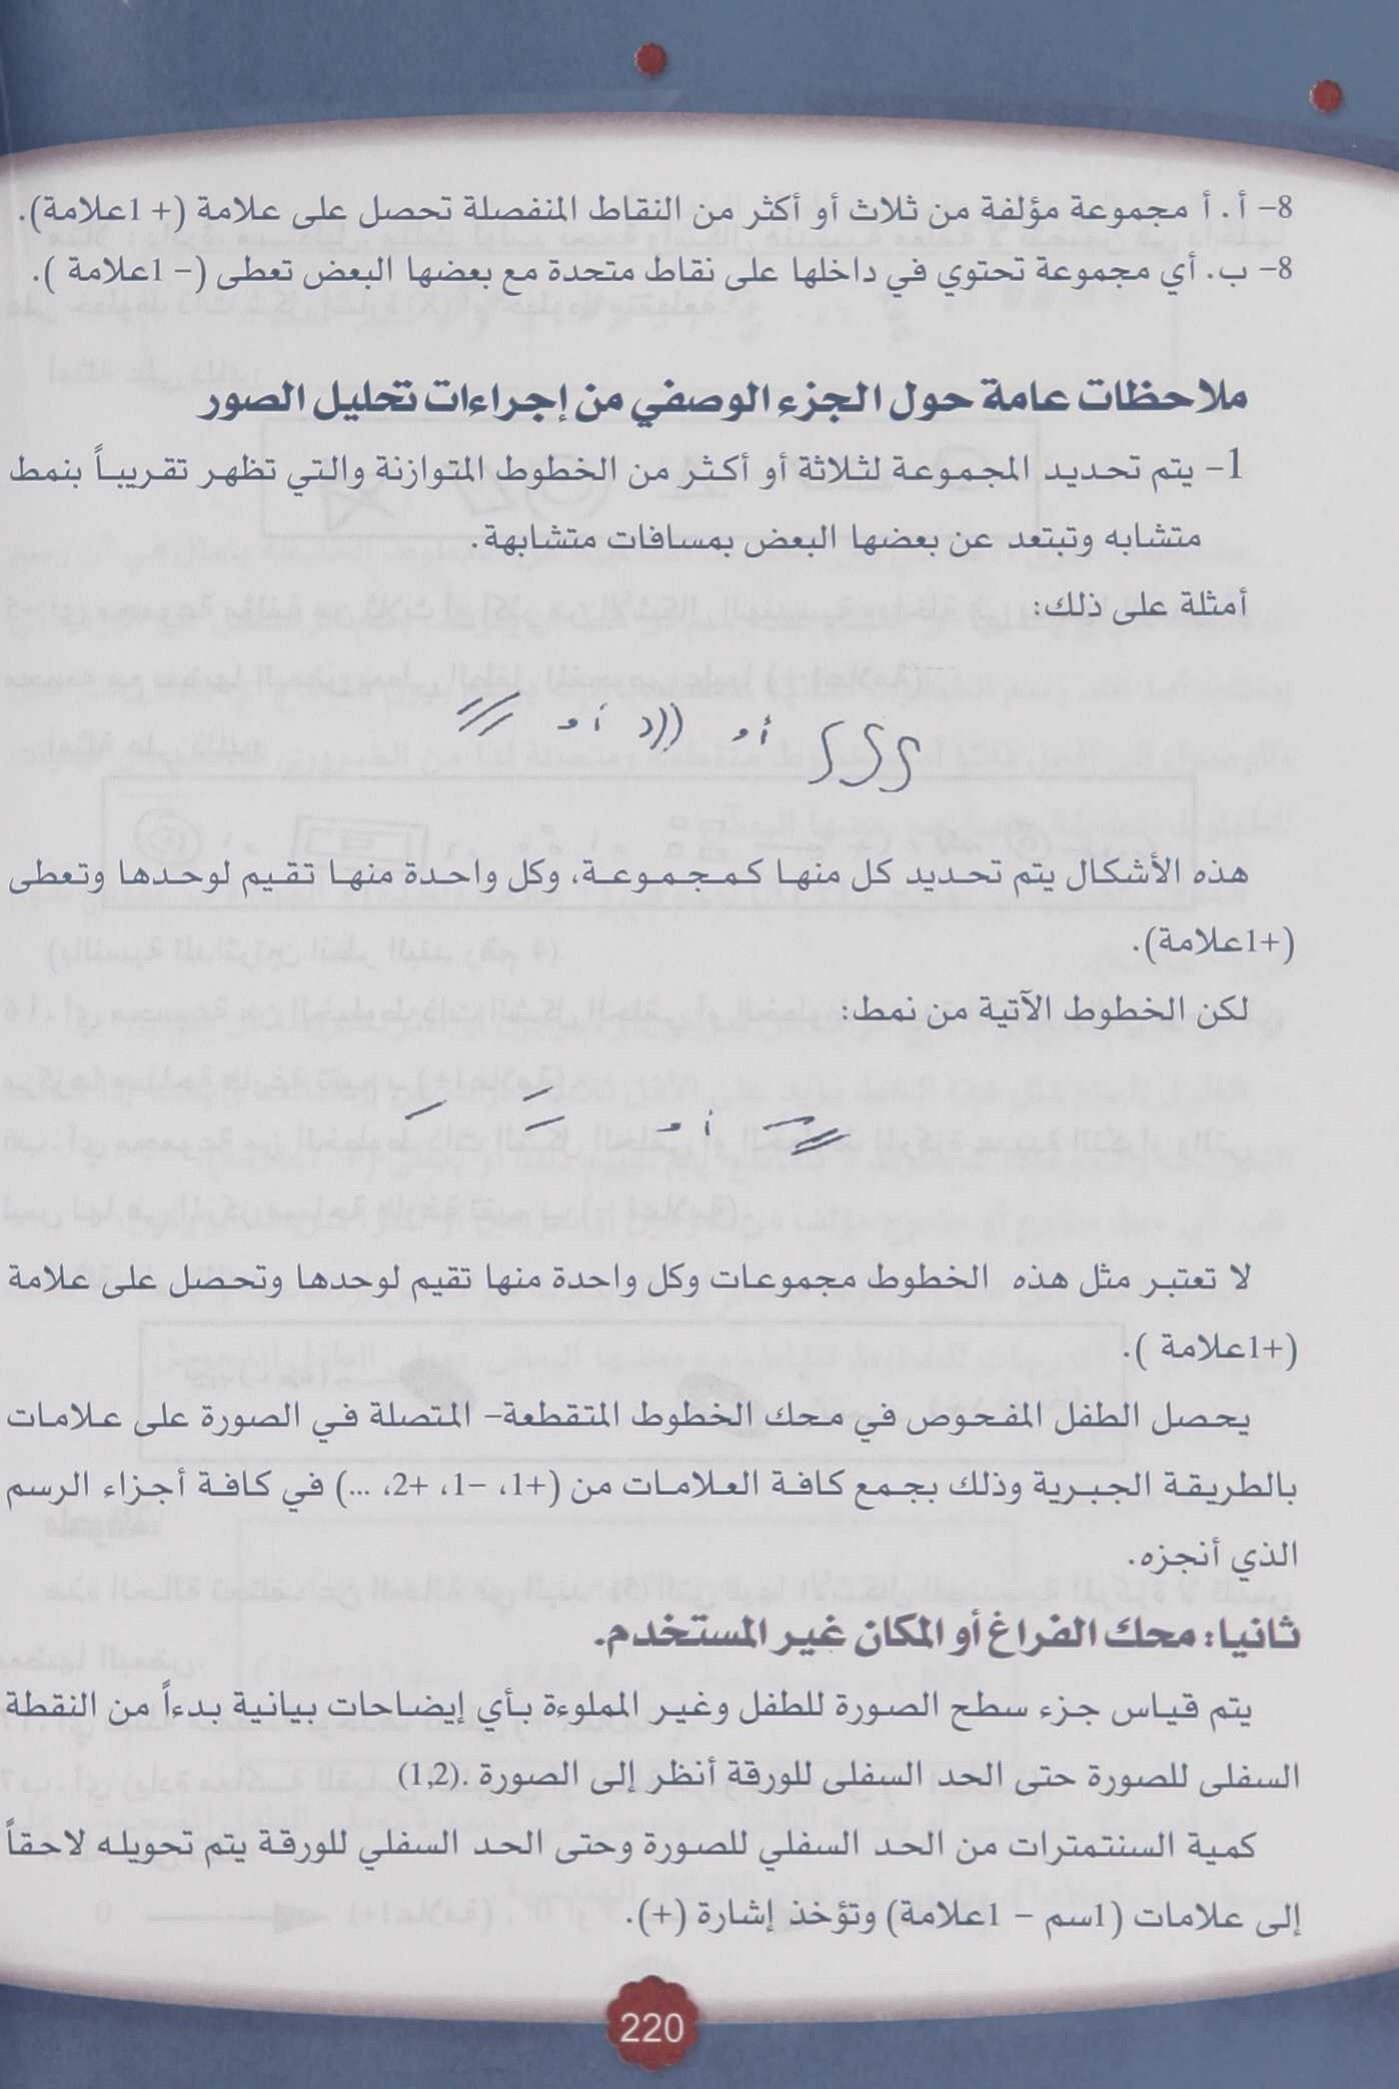 8- أ. أ مجموعة مؤلفة من ثلاث أو أكثر من النقاط المنفصلة تحصل على علامة (+ 1علامة).
8- ب. أي مجموعة تحتوي في داخلها على نقاط متحدة مع بعضها البعض تعطى (- 1علامة ).
ملاحظات عامة حول الجزء الوصفي من إجراءات تحليل الصور
1- يتم تحديد المجموعة لثلاثة أو أكثر من الخطوط المتوازنة والتي تظهر تقريباً بنمط
متشابه وتبتعد عن بعضها البعض بمسافات متشابهة.
أمثلة على ذلك:
أو أو
هذه الأشكال يتم تحديد كل منها كمجموعة، وكل واحدة منها تقيم لوحدها وتعطى
(+1علامة).
لكن الخطوط الآتية من نمط:
أو
لا تعتبر مثل هذه الخطوط مجموعات وكل واحدة منها تقيم لوحدها وتحصل على علامة
(+1علامة ).
يحصل الطفل المفحوص في محك الخطوط المتقطعة- المتصلة في الصورة على علامات
بالطريقة الجبرية وذلك بجمع كافة العلامات من (+1، -1، +2، ...) في كافة أجزاء الرسم
الذي أنجزه.
ثانيا: محك الفراغ أو المكان غير المستخدم.
يتم قياس جزء سطح الصورة للطفل وغير المملوءة بأي إيضاحات بيانية بدءاً من النقطة
السفلى للصورة حتى الحد السفلى للورقة أنظر إلى الصورة .(1,2)
كمية السنتمترات من الحد السفلي للصورة وحتى الحد السفلي للورقة يتم تحويله لاحقاً
إلى علامات (1سم - 1علامة) وتؤخذ إشارة (+).
220